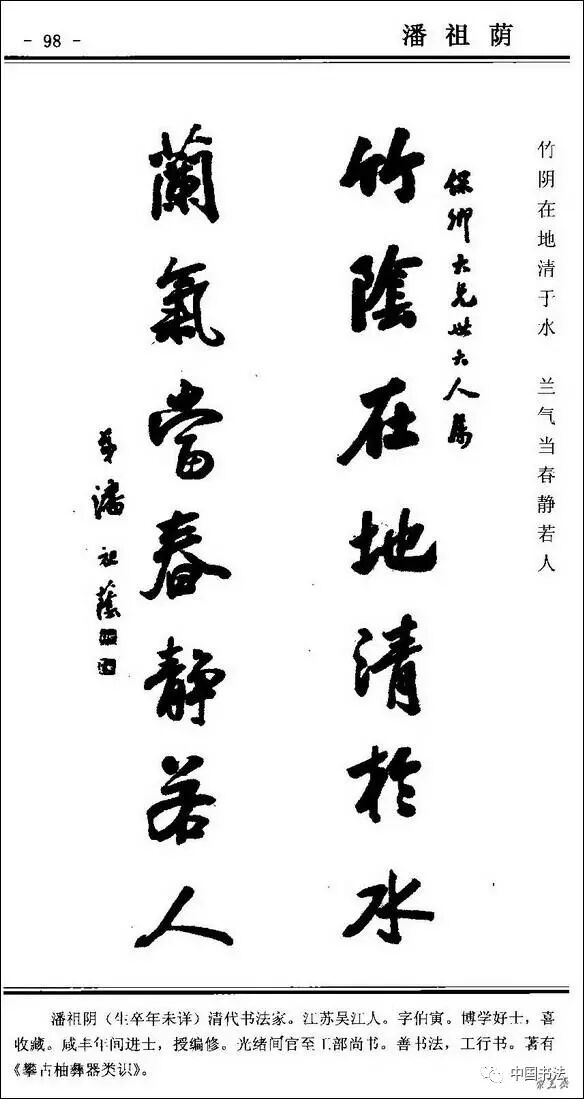 - 98 -
潘祖荫
竹阴在地清于水 兰气当春静若人
保卿大兄世大人属
竹陰在地清於水
蘭氣當春静若人
弟潘祖蔭
潘祖阴（生卒年未详）清代书法家。江苏吴江人。字伯寅。博学好士，喜
收藏。咸丰年间进士，授编修。光绪间官至工部尚书。善书法，工行书。著有
《攀古柚彝器类识》。
中国书法